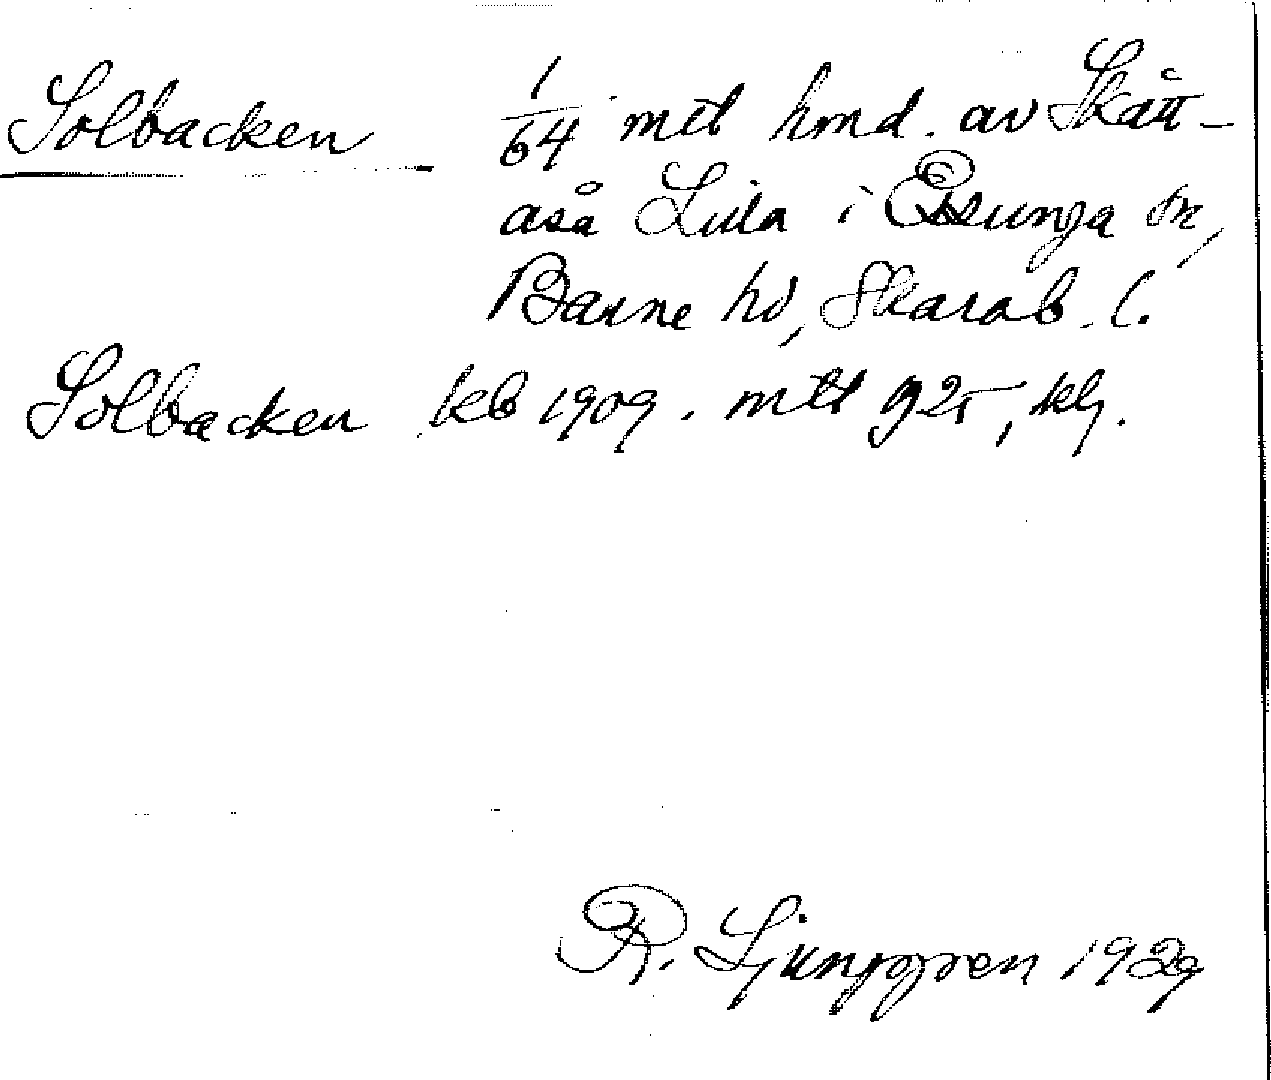 Solbacken 1/64 mtl hmd. av Skätt-
åsa Lilla i Essunga sn,
Barne hd, Skarab. l.
Solbacken kb 1909. mtl 925, klj.
R. Ljunggren 1929